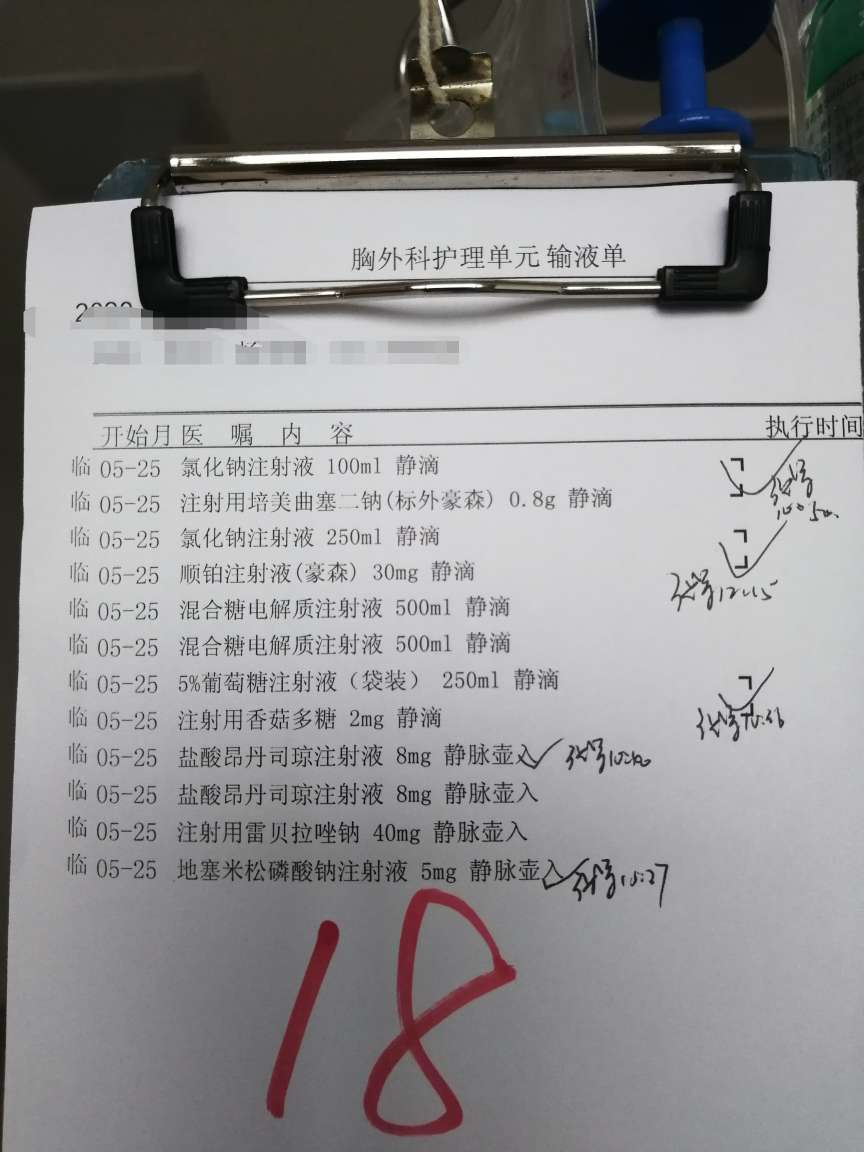 胸外科护理单元 输液单
开始月 医 嘱 内 容 执行时间
临 05-25 氯化钠注射液 100ml 静滴
临 05-25 注射用培美曲塞二钠(标外豪森) 0.8g 静滴
临 05-25 氯化钠注射液 250ml 静滴
临 05-25 顺铂注射液(豪森) 30mg 静滴
临 05-25 混合糖电解质注射液 500ml 静滴
临 05-25 混合糖电解质注射液 500ml 静滴
临 05-25 5%葡萄糖注射液（袋装） 250ml 静滴
临 05-25 注射用香菇多糖 2mg 静滴
临 05-25 盐酸昂丹司琼注射液 8mg 静脉壶入
临 05-25 盐酸昂丹司琼注射液 8mg 静脉壶入
临 05-25 注射用雷贝拉唑钠 40mg 静脉壶入
临 05-25 地塞米松磷酸钠注射液 5mg 静脉壶入
18